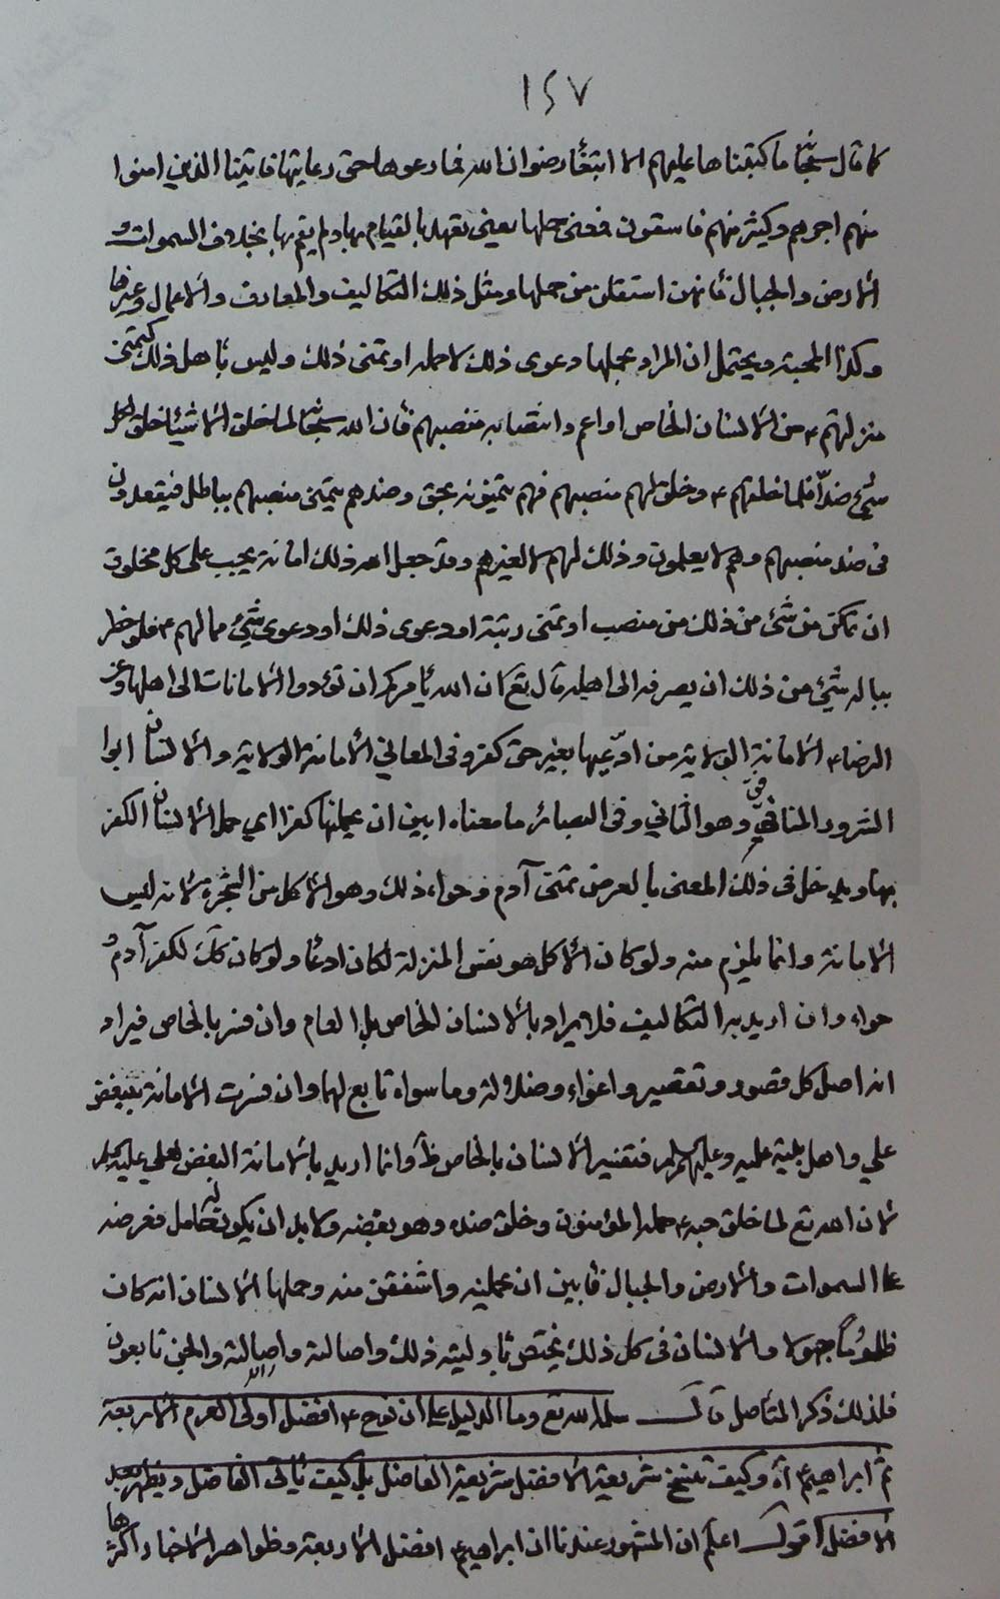 ١٤٧
كما قال سبحانه ما كتبناها عليهم الا ابتغاء رضوان الله فما رعوها حق رعايتها فاتينا الذين امنوا
منهم اجرهم وكثير منهم فاسقون فمعنى حملها يعنى تعهد بالقيام بها ولم يقم بها بخلاف السموات و
الارض والجبال فانهن استقلن من حملها ومثل ذلك التكاليف والمعارف والاعمال وغيرها
وكذا المحبة ويحتمل ان المراد بحملها دعوى ذلك لا حمله او تمنى ذلك وليس باهل ذلك كتمنى
منزلتهم ع من الانسان الخاص او اعم وانتصابه منصبهم فان الله سبحانه لما خلق الاشياء خلق لكل
شئ ضدا فلما خلقهم ع وخلق لهم منصبهم فهم يتمنونه بحق وضدهم يتمنى منصبهم بباطل فيقعدون
فى ضد منصبهم وهم لا يعلمون وذلك لهم لا لغيرهم وقد جعل الله ذلك امانة يجب على كل مخلوق
ان تمكن من شئ من ذلك من منصب او تمنى رتبة او دعوى ذلك او دعوى شئ مما لهم ع فلو خطر
بباله شئ من ذلك ان يصرفه الى اهله قال تع ان الله يامركم ان تؤدوا الامانات الى اهلها وعن
الرضا ع الامانة الولاية من ادعيها بغير حق كفر وفى المعاني الامانة الولاية والانسان ابوا
الشرور المنافق وهو الثاني وفى البصائر ما معناه ابين ان يحملنها كفرا اي حمل الانسان الكفر
بها ويدخل فى ذلك المعنى بالعرض تمنى آدم وحواء ذلك وهو الاكل من الشجرة لانه ليس
الامانة وانما يلزم منه ولو كان الاكل هو نفس المنزلة لكان ادعاء ولو كان كك لكفر آدم و
حواء وان اريد به التكاليف فلا يراد بالانسان الخاص بل العام وان فسر بالخاص فيراد
انه اصل كل قصور وتقصير واغواء وضلالة وما سواه تابع لها وان فسرت الامانة ببغض
علي واهل بيته عليه وعليهم السلام فتفسير الانسان بالخاص ظ وانما اريد بالامانة البغض لعلي عليه السلام
لان الله تع لما خلق حبه ع حمله المؤمنون وخلق ضده وهو بغضه ولا بد ان يكون له حامل فعرضه
على السموات والارض والجبال فابين ان يحملنه واشفقن منه وحملها الانسان انه كان
ظلوما جهولا والانسان فى كل ذلك يختص باوليته ذلك واصالته واصالته والجن تابعون
فلذلك ذكر المتاصل قال سلمه الله تع وما الدليل على ان نوح ع افضل اولى العزم الاربعة
ثم ابراهيم ع اه وكيف تنسخ شريعة الافضل شريعة الفاضل بل كيف ياتى الفاضل ويظهر بعد
الافضل اقول اعلم ان المشهور عندنا ان ابراهيم ع افضل الاربعة وظواهر الاخبار اكثرها